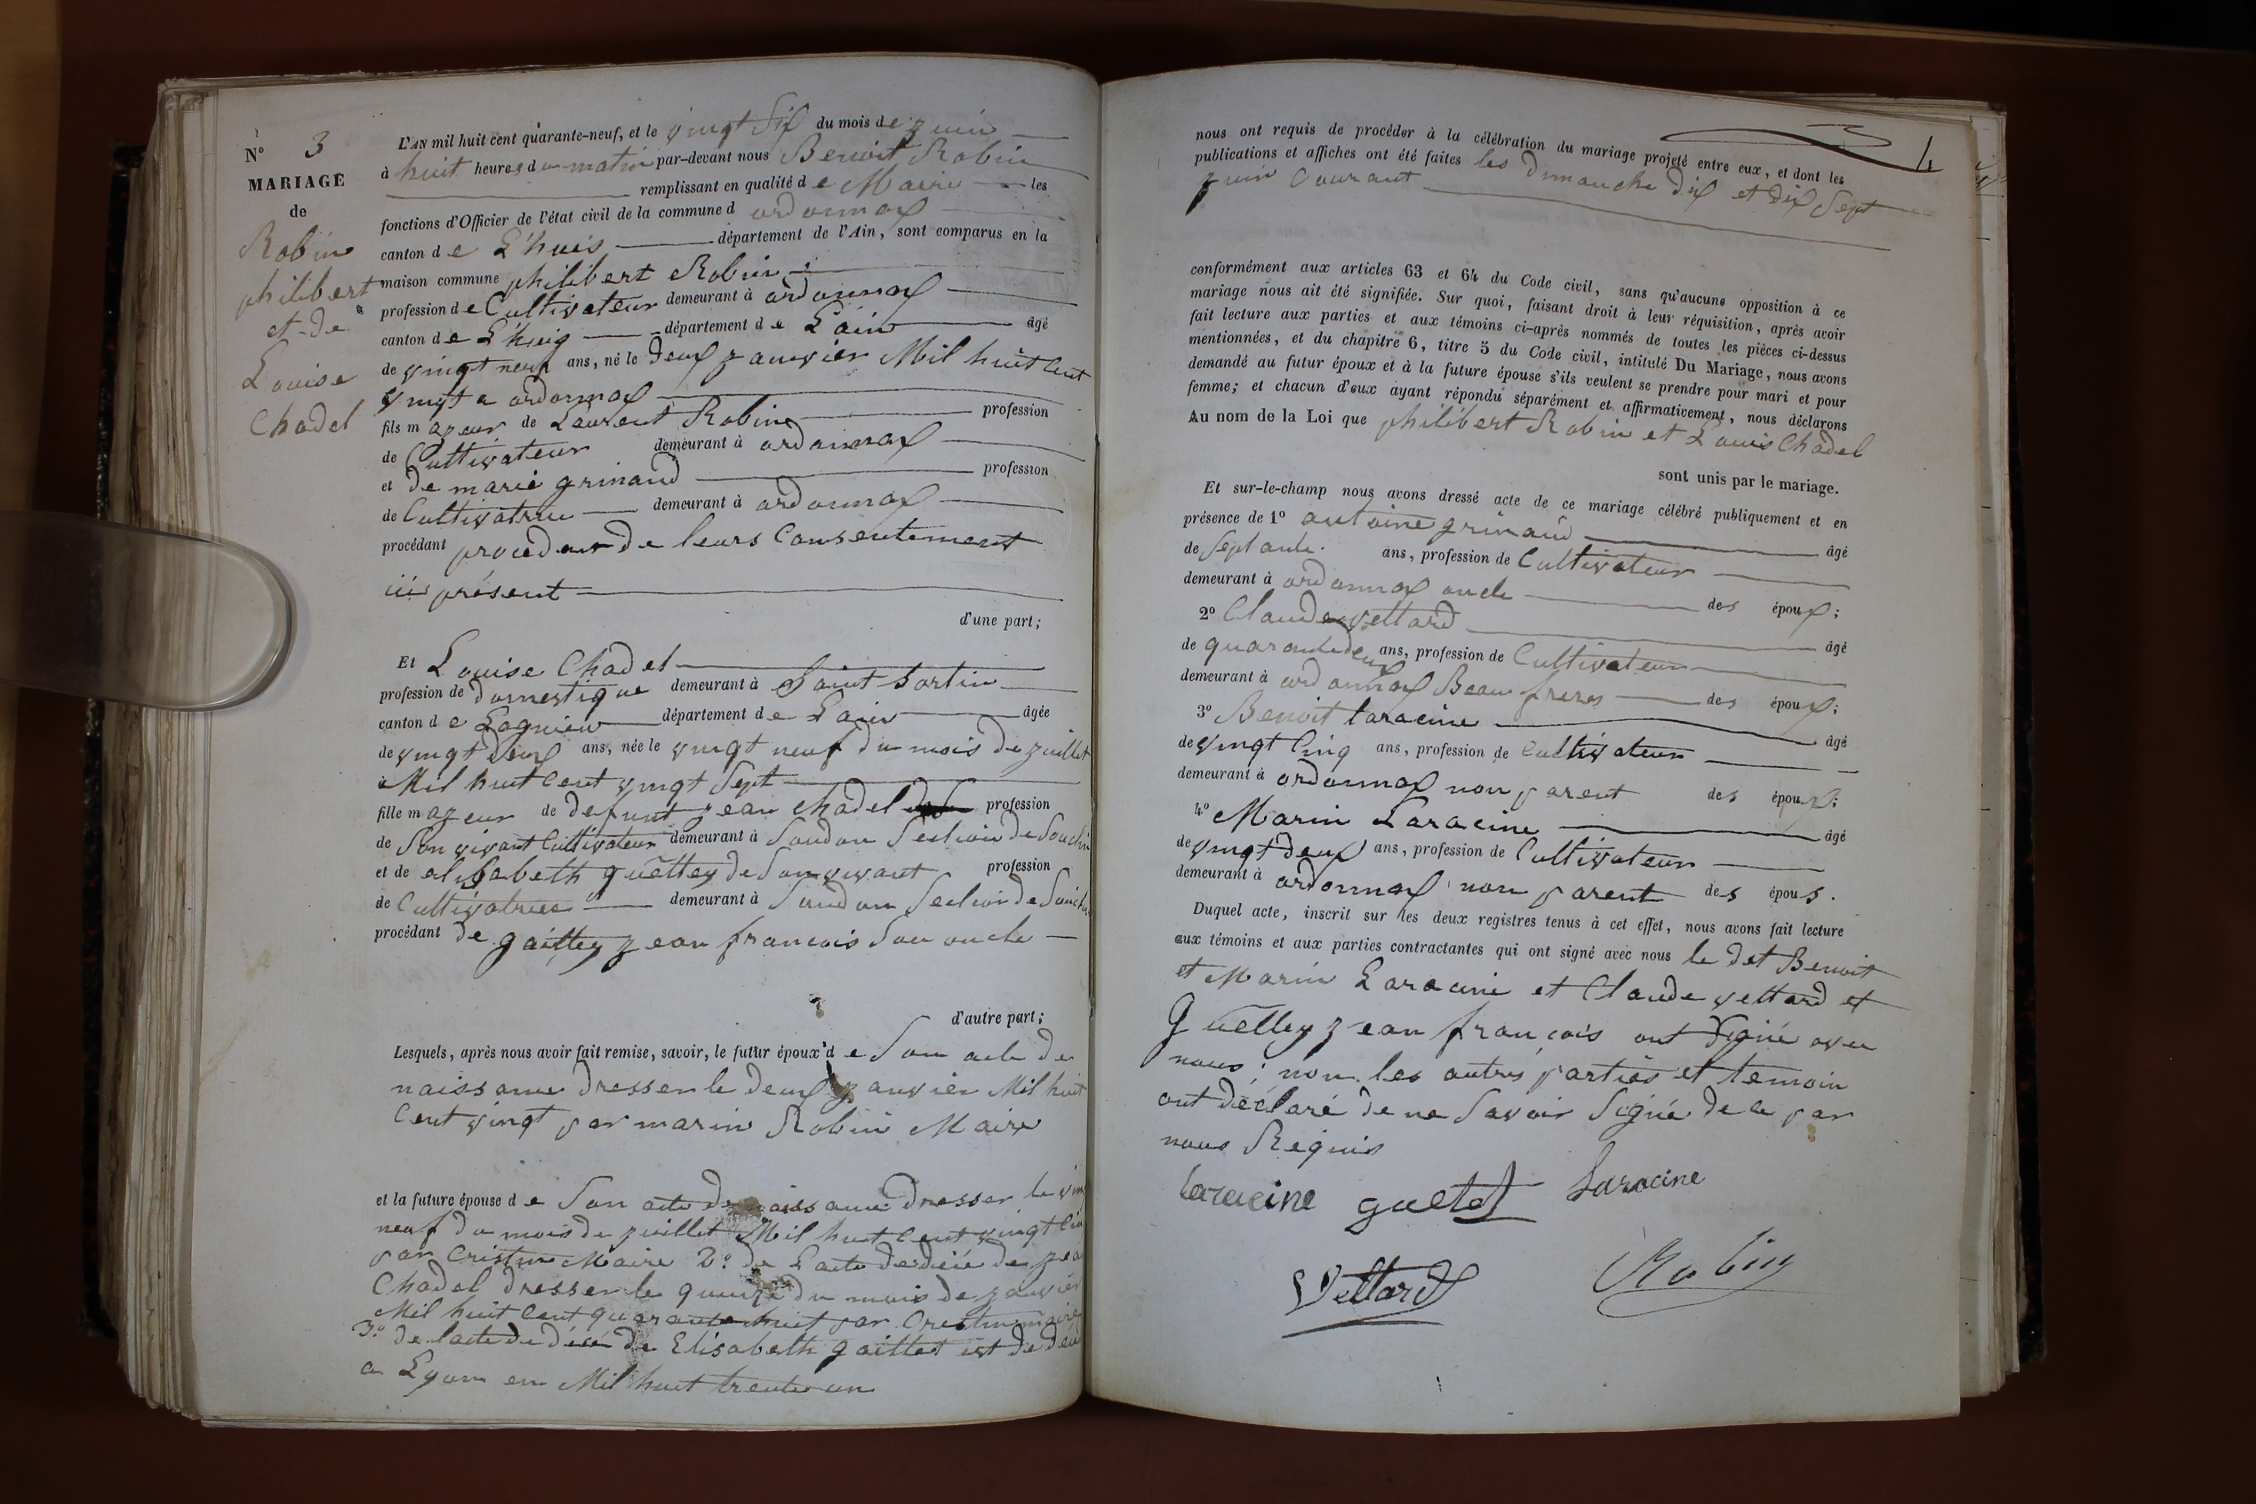 N° 3
MARIAGE
de
Robin
philibert
et de
Louise
Chadel
L'AN mil huit cent quarante-neuf, et le vingt six du mois de juin
à huit heures du matin par-devant nous Benoit Robin
remplissant en qualité de Maire les
fonctions d'Officier de l'état civil de la commune d ordonnax
canton de L'huis département de l'Ain, sont comparus en la
maison commune philibert Robin
profession de Cultivateur demeurant à ordonnax
canton de L'huis département de L'ain âgé
de vingt neuf ans, né le deux janvier Mil huit Cent
vingt a ordonnax
fils majeur de Laurent Robin profession
de Cultivateur demeurant à ordonnax
et de marie grinand profession
de Cultivatrice demeurant à ordonnax
procédant procedant de leurs Consentement
ici présent
d'une part;
Et Louise Chadel
profession de domestique demeurant à Saint Sortin
canton de Lagnieu département de L'ain âgée
de vingt deux ans, née le vingt neuf du mois de juillet
à Mil huit Cent vingt Sept
fille majeur de defunt jean chadel profession
de Son vivant Cultivateur demeurant à Soudon Section de Souclin
et de elisabeth guëttey de Son vivant profession
de Cultivatrice demeurant à Soudon Section de
procédant de gaittey jean francois Son oncle
d'autre part;
Lesquels, après nous avoir fait remise, savoir, le futur époux d e Son acte de
naissance dresser le deux janvier Mil huit
Cent vingt par marin Robin Maire
et la future épouse d e Son acte de naissance dresser le
neuf du mois de juillet Mil huit Cent vingt
par Cristin Maire 2° de L'acte de décé de
Chadel dresser le quinze du mois de janvier
Mil huit Cent quarante huit par Cristin maire
3° de l'acte de décé de Elisabeth gaittet est de
a Lyon en Mil huit trente un
nous ont requis de procéder à la célébration du mariage projeté entre eux, et dont les
publications et affiches ont été faites les dimanche dix et dix Sept
juin Courant
conformément aux articles 63 et 64 du Code civil, sans qu'aucune opposition à ce
mariage nous ait été signifiée. Sur quoi, faisant droit à leur réquisition, après avoir
fait lecture aux parties et aux témoins ci-après nommés de toutes les pièces ci-dessus
mentionnées, et du chapitre 6, titre 5 du Code civil, intitulé Du Mariage, nous avons
demandé au futur époux et à la future épouse s'ils veulent se prendre pour mari et pour
femme; et chacun d'eux ayant répondu séparément et affirmativement, nous déclarons
Au nom de la Loi que philibert Robin et Louis Chadel
sont unis par le mariage.
Et sur-le-champ nous avons dressé acte de ce mariage célébré publiquement et en
présence de 1° antoine grinand âgé
de Septante ans, profession de Cultivateur
demeurant à ordonnax oncle des époux;
2° Claude vettard âgé
de quarante deux ans, profession de Cultivateur
demeurant à ordonnax Beau freres des époux;
3° Benoit laracine âgé
de vingt Cinq ans, profession de Cultivateur
demeurant à ordonnax non parent des époux;
4° Marin Laracine âgé
de vingt deux ans, profession de Cultivateur
demeurant à ordonnax non parent des épous.
Duquel acte, inscrit sur les deux registres tenus à cet effet, nous avons fait lecture
aux témoins et aux parties contractantes qui ont signé avec nous le dit Benoit
et Marin Laracine et Claude vettard et
Guëlley jean françois ont signé avec
nous; non les autres parties et temoin
ont déclaré de ne Savoir Signé de ce par
nous Réquis
laracine gaelet Laracine
Vettard Robin